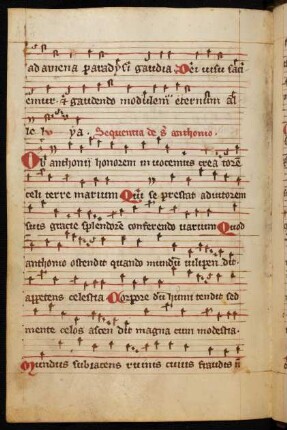 ad amena paradysi gaudia Dei visu saci
emur & gaudendo modulem eternum al
le lu ya. Sequentia de s anthonio.
In anthonij honorem in uocemus creatorem
celi terre marium Qui se prestat adiutorem
suis gracie splendore conferendo uarium Quod
anthonio ostendit quando mundum vilipendit
appetens celestia Corpore dum humi tendit sed
mente celos ascendit magna cum modestia.
Mundus subiacens ruinis cuius fraudis